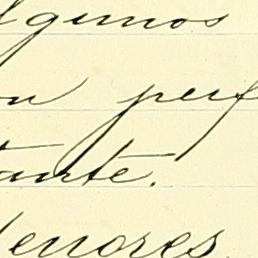 lgunos
on perf
tante.
enores